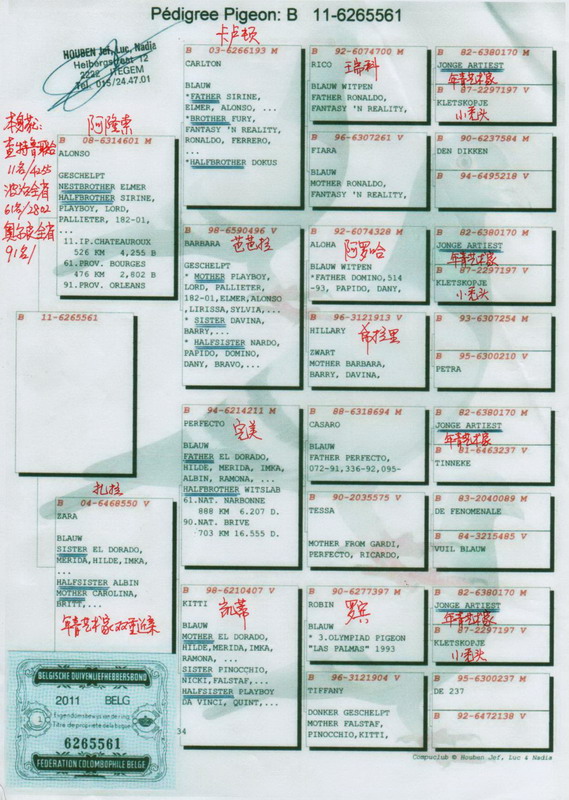 Pédigree Pigeon: B 11-6265561
HOUBEN Jef, Luc, Nadia
Heibergstraat 12
2222 ITEGEM
Tel. 015/24.47.01
本身就:
11名/4255
61名/2802
91名/
阿隆索
B 08-6314601 M
ALONSO
GESCHELPT
NESTBROTHER ELMER
HALFBROTHER SIRINE,
PLAYBOY, LORD,
PALLIETER, 182-01,
...
11.IP.CHATEAUROUX
526 KM 4,255 B
61.PROV. BOURGES
476 KM 2,802 B
91.PROV. ORLEANS
B 11-6265561
扎拉
B 04-6468550 V
ZARA
BLAUW
SISTER EL DORADO,
MERIDA,HILDE,IMKA,
...
HALFSISTER ALBIN
MOTHER CAROLINA,
BRITT,...
年青艺术家双重近亲
BELGISCHE DUIVENLIEFHEBBERSBOND
2011 BELG
Eigendomsbewijs van de ring
Titre de propriété de la bague
6265561
FEDERATION COLOMBOPHILE BELGE
卡卢顿
B 03-6266193 M
CARLTON
BLAUW
*FATHER SIRINE,
ELMER, ALONSO, ...
*BROTHER FURY,
FANTASY 'N REALITY,
RONALDO, FERRERO,
...
*HALFBROTHER DOKUS
B 98-6590496 V
BARBARA 芭芭拉
GESCHELPT
* MOTHER PLAYBOY,
LORD, PALLIETER,
182-01,ELMER,ALONSO
,LIRISSA,SYLVIA,...
* SISTER DAVINA,
BARRY,...
* HALFSISTER NARDO,
PAPIDO, DOMINO,
DANY, BRAVO,...
B 94-6214211 M
PERFECTO 完美
BLAUW
FATHER EL DORADO,
HILDE, MERIDA, IMKA,
ALBIN, RAMONA, ...
HALFBROTHER WITSLAB
61.NAT. NARBONNE
888 KM 6.207 D.
90.NAT. BRIVE
703 KM 16.555 D.
B 98-6210407 V
KITTI 凯蒂
BLAUW
MOTHER EL DORADO,
HILDE,MERIDA,IMKA,
RAMONA, ...
SISTER PINOCCHIO,
NICKI,FALSTAF,...
HALFSISTER PLAYBOY
DA VINCI, QUINT,...
34
B 92-6074700 M
RICO 瑞科
BLAUW WITPEN
FATHER RONALDO,
FANTASY 'N REALITY,
B 96-6307261 V
FIARA
BLAUW
MOTHER RONALDO,
FANTASY 'N REALITY,
B 92-6074328 M
ALOHA 阿罗哈
BLAUW WITPEN
*FATHER DOMINO,514
-93, PAPIDO, DANY,
B 96-3121913 V
HILLARY 希拉里
ZWART
MOTHER BARBARA,
BARRY, DAVINA,
B 88-6318694 M
CASARO
BLAUW
FATHER PERFECTO,
072-91,336-92,095-
B 90-2035575 V
TESSA
MOTHER FROM GARDI,
PERFECTO, RICARDO,
B 90-6277397 M
ROBIN 罗宾
BLAUW
* 3.OLYMPIAD PIGEON
"LAS PALMAS" 1993
B 96-3121904 V
TIFFANY
DONKER GESCHELPT
MOTHER FALSTAF,
PINOCCHIO,KITTI,
B 82-6380170 M
JONGE ARTIEST
年青艺术家
B 87-2297197 V
KLETSKOPJE
小秃头
B 90-6237584 M
DEN DIKKEN
B 94-6495218 V
B 82-6380170 M
JONGE ARTIEST
年青艺术家
B 87-2297197 V
KLETSKOPJE
小秃头
B 93-6307254 M
B 95-6300210 V
PETRA
B 82-6380170 M
JONGE ARTIEST
年青艺术家
B 81-6463237 V
TINNEKE
B 83-2040089 M
DE FENOMENALE
B 84-3215485 V
VUIL BLAUW
B 82-6380170 M
JONGE ARTIEST
年青艺术家
B 87-2297197 V
KLETSKOPJE
小秃头
B 95-6300237 M
DE 237
B 92-6472138 V
Compuclub © Houben Jef, Luc & Nadia